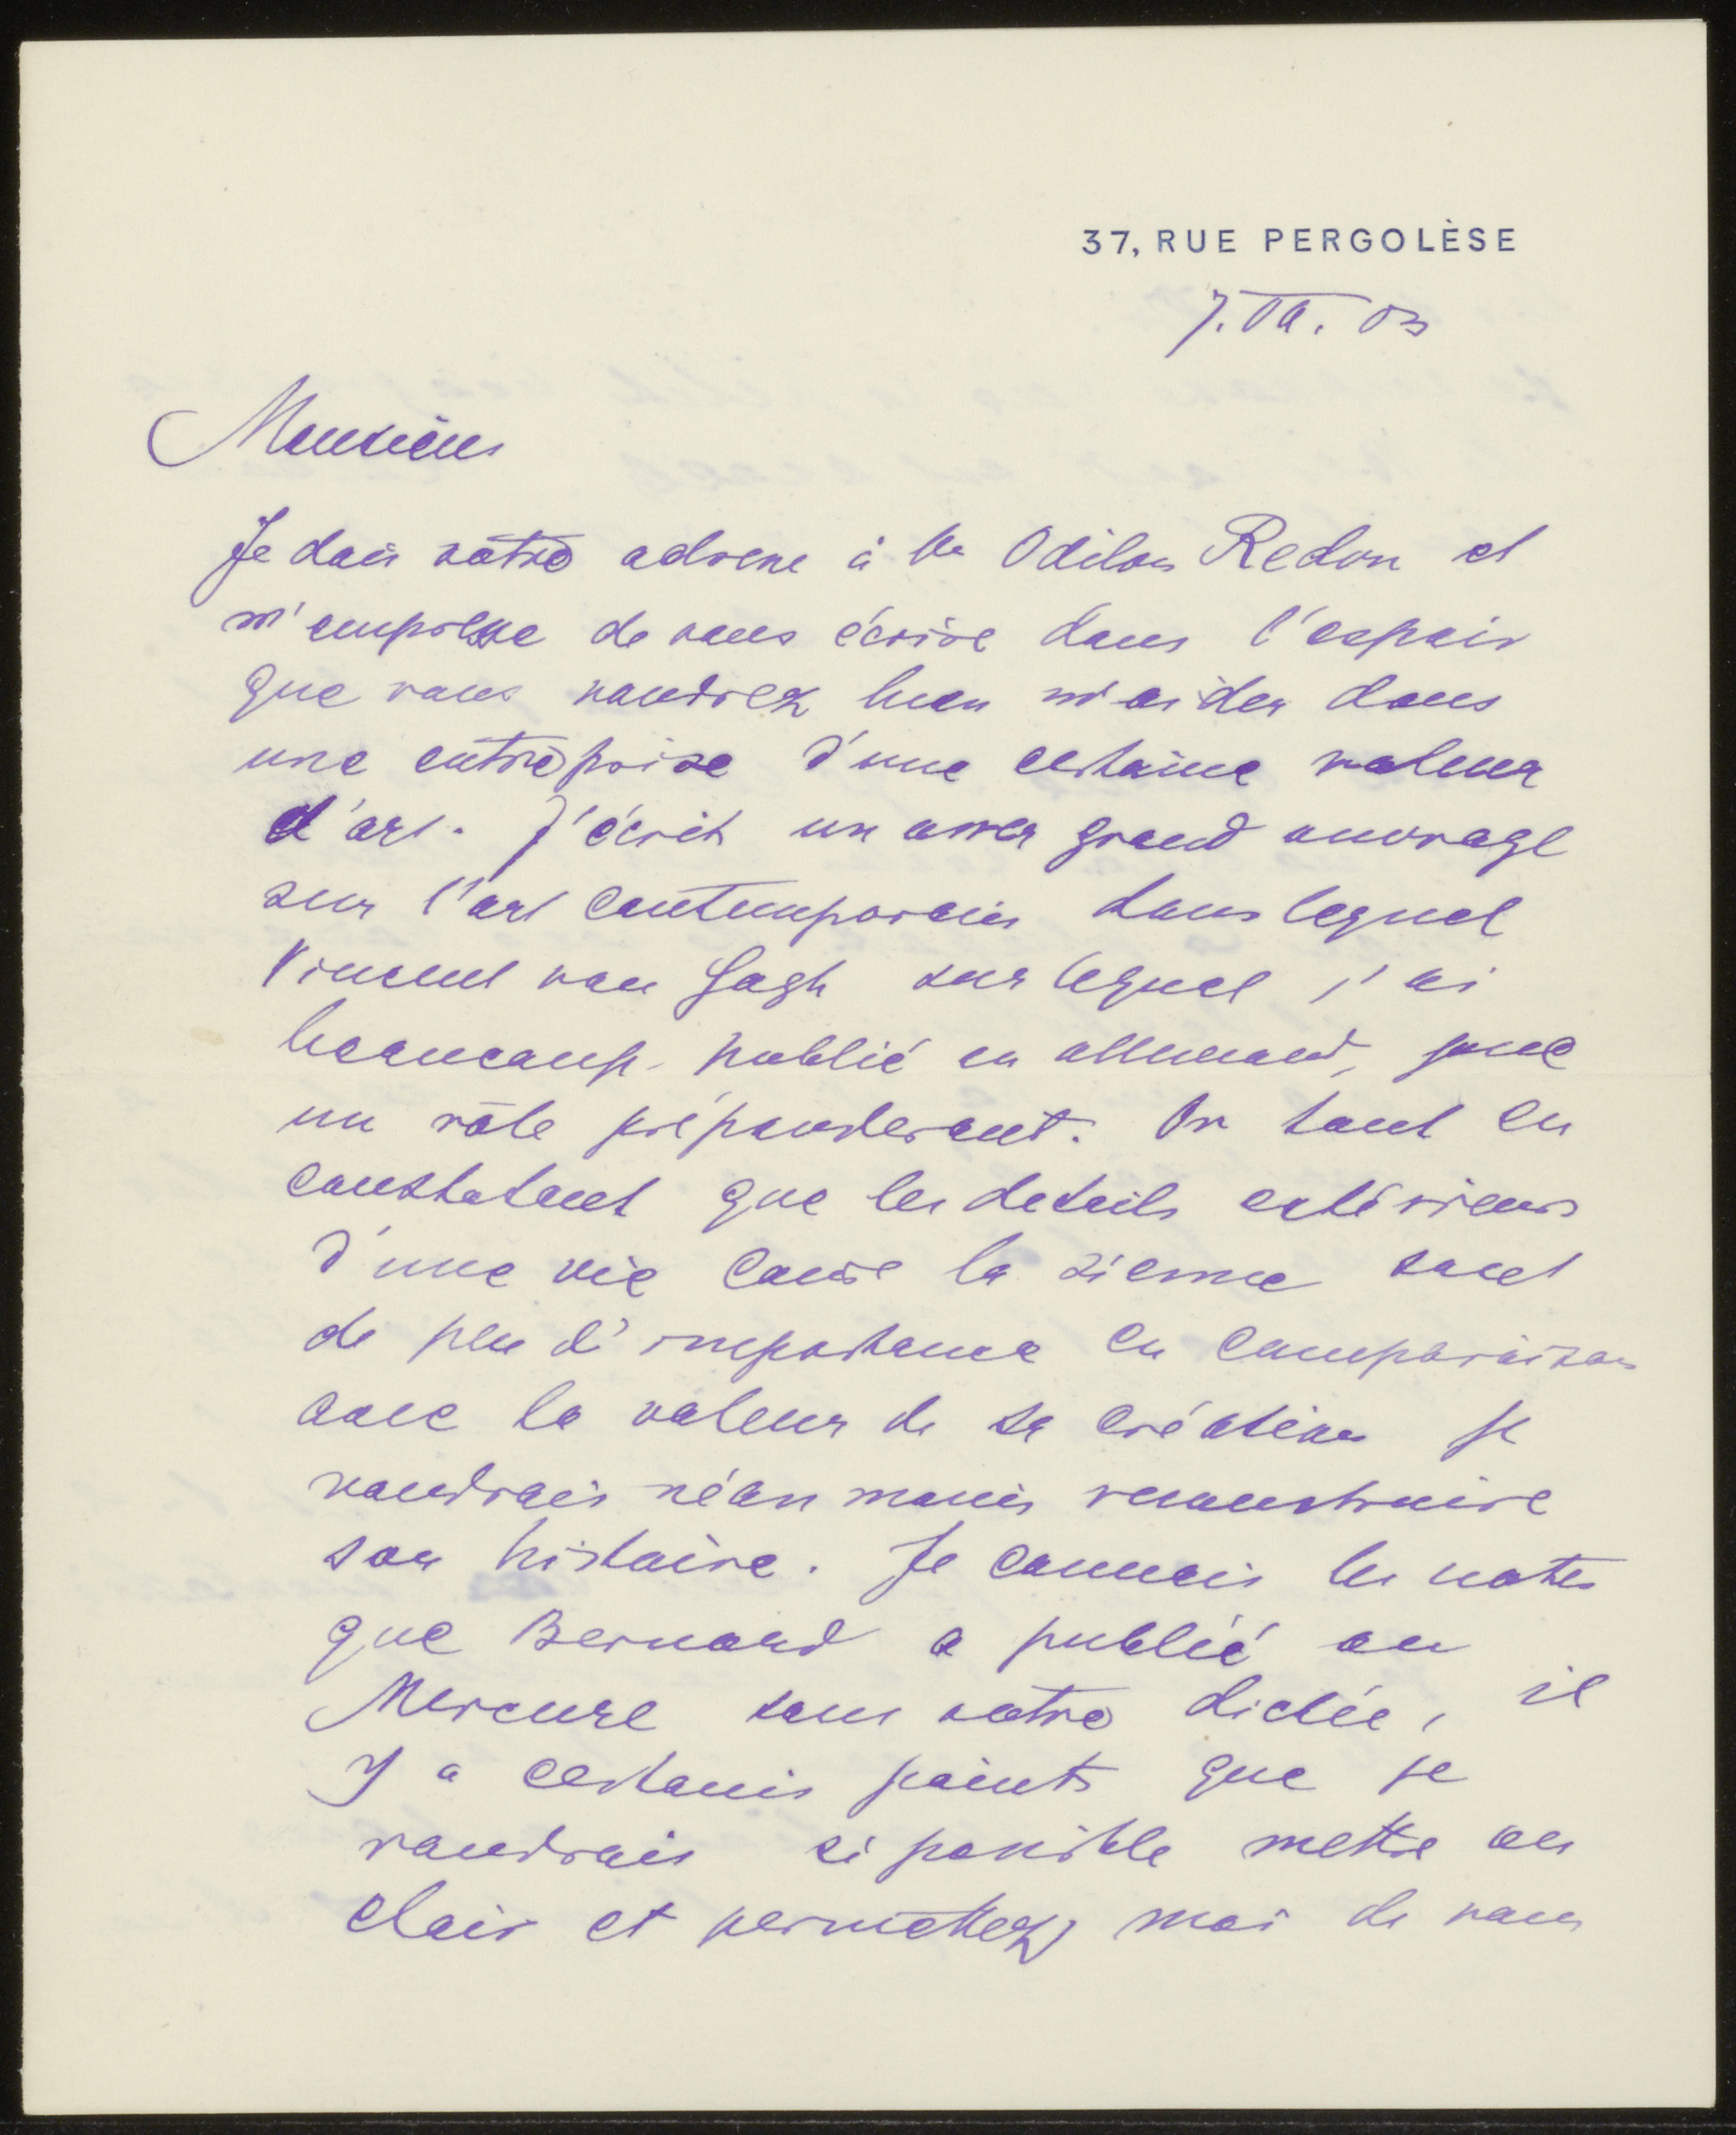 37, RUE PERGOLÈSE
7. VII. 03
Monsieur
Je dois votre adresse à Mr Odilon Redon et
m'empresse de vous écrire dans l'espoir
que vous voudrez bien m'aider dans
une entreprise d'une certaine valeur
d'art. J'écris un assez grand ouvrage
sur l'art contemporain dans lequel
Vincent van Gogh sur lequel j'ai
beaucoup publié en allemand, joue
un rôle préponderant. Or tout en
constatant que les details extérieurs
d'une vie comme la sienne sont
de peu d'importance en comparaison
avec la valeur de sa création je
voudrais néanmoins reconstruire
son histoire. Je connais les notes
que Bernard a publié au
Mercure sous votre dictée, il
y a certains points que je
voudrais si possible mettre au
clair et permettez moi de vous